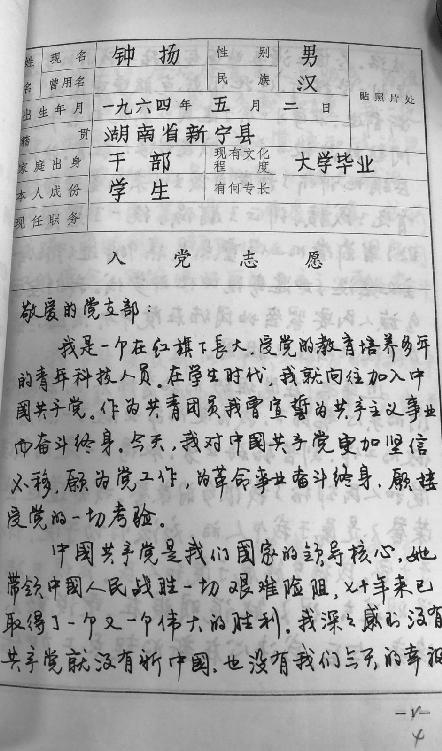 姓 现名 钟扬 性别 男
名 曾用名 民族 汉 贴照片处
出生年月 一九六四年五月二日
籍贯 湖南省新宁县
家庭出身 干部 现有文化程度 大学毕业
本人成份 学生 有何专长
现任职务
入党志愿
敬爱的党支部：
我是一个在红旗下長大、受党的教育培养多年
的青年科技人员。在学生时代，我就向往加入中
國共产党。作为共青团员我曾宣誓为共产主义事业
而奋斗终身。今天，我对中國共产党更加坚信
不移，願为党工作，为革命事业奋斗终身，願接
受党的一切考验。
中國共产党是我们国家的领导核心，她
带领中國人民战胜一切艰难险阻，七十年来已
取得了一个又一个伟大的胜利。我深深感到没有
共产党就没有新中國，也没有我们今天的幸福
4